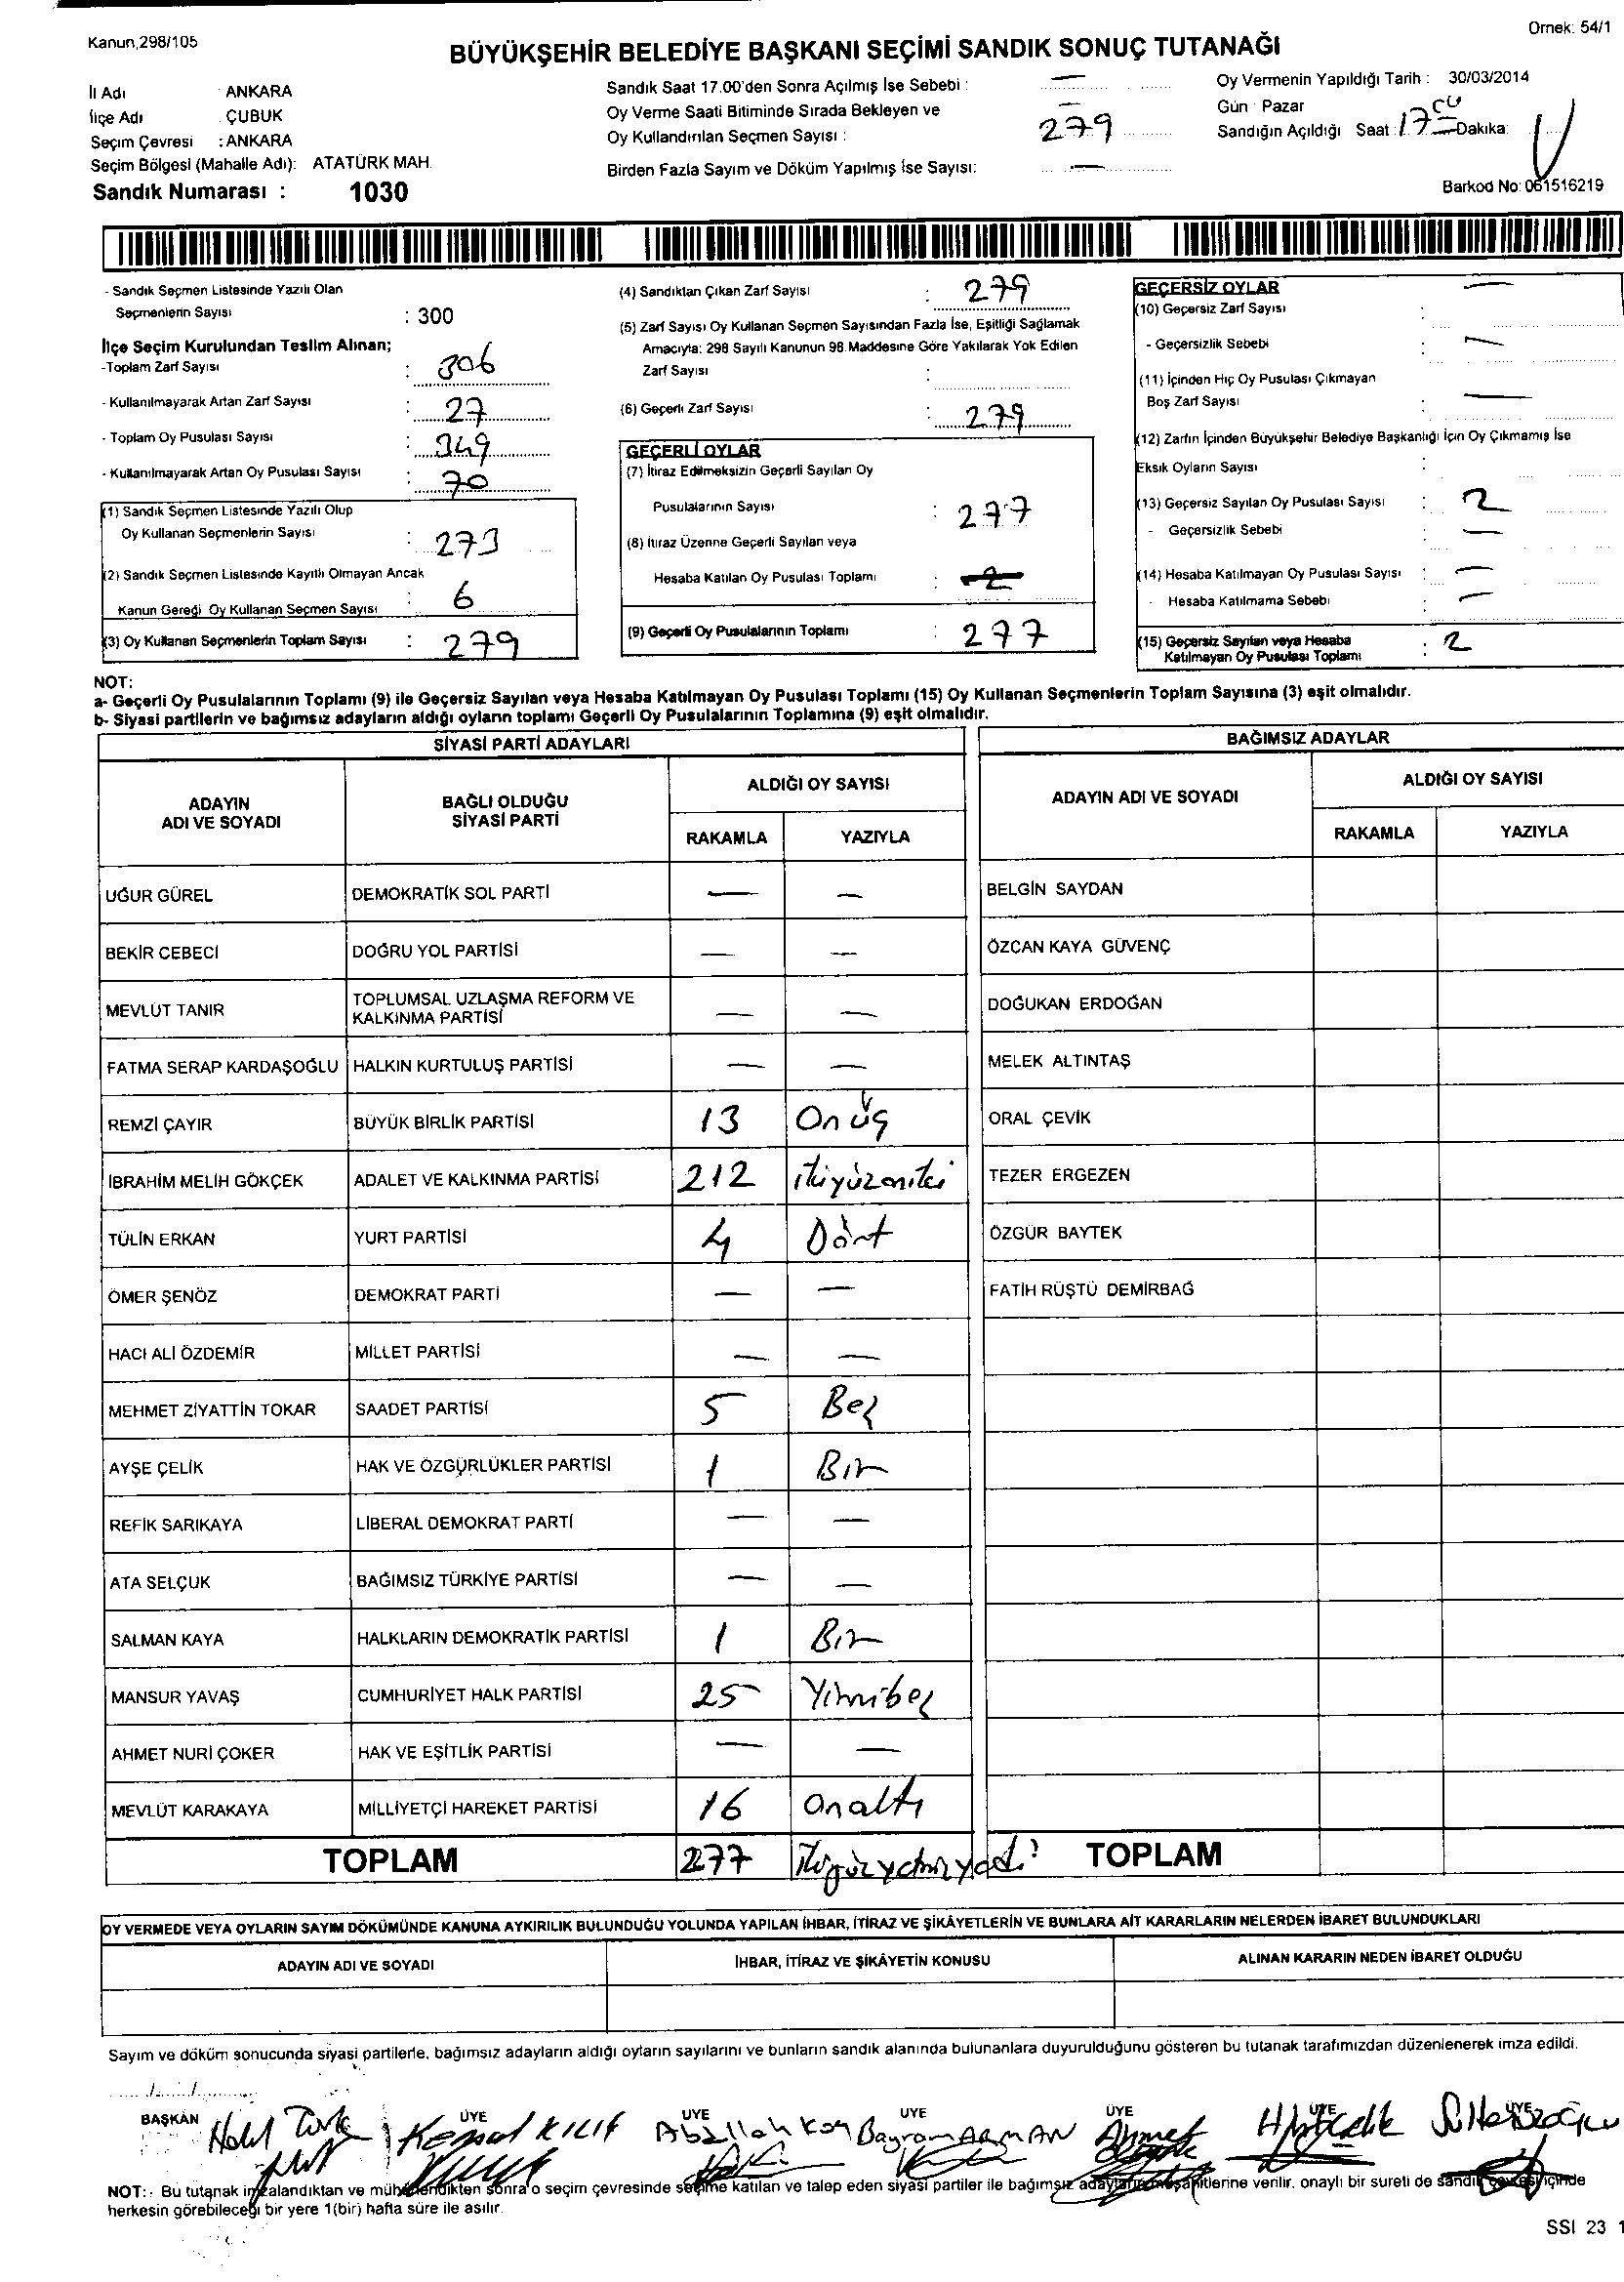 Kanun,298/105
Örnek: 54/1
BÜYÜKŞEHİR BELEDİYE BAŞKANI SEÇİMİ SANDIK SONUÇ TUTANAĞI
İl Adı : ANKARA
İlçe Adı : ÇUBUK
Seçim Çevresi : ANKARA
Seçim Bölgesi (Mahalle Adı): ATATÜRK MAH.
Sandık Numarası : 1030
Sandık Saat 17.00'den Sonra Açılmış İse Sebebi : —
Oy Verme Saati Bitiminde Sırada Bekleyen ve —
Oy Kullandırılan Seçmen Sayısı : 279
Birden Fazla Sayım ve Döküm Yapılmış İse Sayısı: —
Oy Vermenin Yapıldığı Tarih : 30/03/2014
Gün : Pazar
Sandığın Açıldığı Saat : 17 00 Dakika:
Barkod No: 061516219
- Sandık Seçmen Listesinde Yazılı Olan
Seçmenlerin Sayısı : 300
İlçe Seçim Kurulundan Teslim Alınan;
-Toplam Zarf Sayısı : 306
- Kullanılmayarak Artan Zarf Sayısı : 27
- Toplam Oy Pusulası Sayısı : 349
- Kullanılmayarak Artan Oy Pusulası Sayısı : 70
(1) Sandık Seçmen Listesinde Yazılı Olup
Oy Kullanan Seçmenlerin Sayısı : 273
(2) Sandık Seçmen Listesinde Kayıtlı Olmayan Ancak
Kanun Gereği Oy Kullanan Seçmen Sayısı : 6
(3) Oy Kullanan Seçmenlerin Toplam Sayısı : 279
(4) Sandıktan Çıkan Zarf Sayısı : 279
(5) Zarf Sayısı Oy Kullanan Seçmen Sayısından Fazla İse, Eşitliği Sağlamak
Amacıyla: 298 Sayılı Kanunun 98.Maddesine Göre Yakılarak Yok Edilen
Zarf Sayısı :
(6) Geçerli Zarf Sayısı : 279
GEÇERLİ OYLAR
(7) İtiraz Edilmeksizin Geçerli Sayılan Oy
Pusulalarının Sayısı : 277
(8) İtiraz Üzerine Geçerli Sayılan veya
Hesaba Katılan Oy Pusulası Toplamı : 2
(9) Geçerli Oy Pusulalarının Toplamı : 277
GEÇERSİZ OYLAR —
(10) Geçersiz Zarf Sayısı :
- Geçersizlik Sebebi : —
(11) İçinden Hiç Oy Pusulası Çıkmayan
Boş Zarf Sayısı : —
(12) Zarfın İçinden Büyükşehir Belediye Başkanlığı İçin Oy Çıkmamış İse
Eksik Oyların Sayısı :
(13) Geçersiz Sayılan Oy Pusulası Sayısı : 2
- Geçersizlik Sebebi : —
(14) Hesaba Katılmayan Oy Pusulası Sayısı : —
- Hesaba Katılmama Sebebi : —
(15) Geçersiz Sayılan veya Hesaba
Katılmayan Oy Pusulası Toplamı : 2
NOT:
a- Geçerli Oy Pusulalarının Toplamı (9) ile Geçersiz Sayılan veya Hesaba Katılmayan Oy Pusulası Toplamı (15) Oy Kullanan Seçmenlerin Toplam Sayısına (3) eşit olmalıdır.
b- Siyasi partilerin ve bağımsız adayların aldığı oyların toplamı Geçerli Oy Pusulalarının Toplamına (9) eşit olmalıdır.
SİYASİ PARTİ ADAYLARI
ADAYIN
ADI VE SOYADI
BAĞLI OLDUĞU
SİYASİ PARTİ
ALDIĞI OY SAYISI
RAKAMLA YAZIYLA
UĞUR GÜREL DEMOKRATİK SOL PARTİ — —
BEKİR CEBECİ DOĞRU YOL PARTİSİ — —
MEVLÜT TANIR TOPLUMSAL UZLAŞMA REFORM VE
KALKINMA PARTİSİ — —
FATMA SERAP KARDAŞOĞLU HALKIN KURTULUŞ PARTİSİ — —
REMZİ ÇAYIR BÜYÜK BİRLİK PARTİSİ 13 Onüç
İBRAHİM MELİH GÖKÇEK ADALET VE KALKINMA PARTİSİ 212 ikiyüzoniki
TÜLİN ERKAN YURT PARTİSİ 4 Dört
ÖMER ŞENÖZ DEMOKRAT PARTİ — —
HACI ALİ ÖZDEMİR MİLLET PARTİSİ — —
MEHMET ZİYATTİN TOKAR SAADET PARTİSİ 5 Beş
AYŞE ÇELİK HAK VE ÖZGÜRLÜKLER PARTİSİ 1 Bir
REFİK SARIKAYA LİBERAL DEMOKRAT PARTİ — —
ATA SELÇUK BAĞIMSIZ TÜRKİYE PARTİSİ — —
SALMAN KAYA HALKLARIN DEMOKRATİK PARTİSİ 1 Bir
MANSUR YAVAŞ CUMHURİYET HALK PARTİSİ 25 Yirmibeş
AHMET NURİ ÇOKER HAK VE EŞİTLİK PARTİSİ — —
MEVLÜT KARAKAYA MİLLİYETÇİ HAREKET PARTİSİ 16 onaltı
TOPLAM 277 ikiyüzyetmişyedi
BAĞIMSIZ ADAYLAR
ADAYIN ADI VE SOYADI
ALDIĞI OY SAYISI
RAKAMLA YAZIYLA
BELGİN SAYDAN
ÖZCAN KAYA GÜVENÇ
DOĞUKAN ERDOĞAN
MELEK ALTINTAŞ
ORAL ÇEVİK
TEZER ERGEZEN
ÖZGÜR BAYTEK
FATİH RÜŞTÜ DEMİRBAĞ
TOPLAM
OY VERMEDE VEYA OYLARIN SAYIM DÖKÜMÜNDE KANUNA AYKIRILIK BULUNDUĞU YOLUNDA YAPILAN İHBAR, İTİRAZ VE ŞİKÂYETLERİN VE BUNLARA AİT KARARLARIN NELERDEN İBARET BULUNDUKLARI
ADAYIN ADI VE SOYADI İHBAR, İTİRAZ VE ŞİKÂYETİN KONUSU ALINAN KARARIN NEDEN İBARET OLDUĞU
Sayım ve döküm sonucunda siyasi partilerle, bağımsız adayların aldığı oyların sayılarını ve bunların sandık alanında bulunanlara duyurulduğunu gösteren bu tutanak tarafımızdan düzenlenerek imza edildi.
BAŞKAN ÜYE ÜYE ÜYE ÜYE ÜYE ÜYE
Kemal KILIÇ Abdullah Bayram ARMAN Ahmet
NOT: : Bu tutanak imzalandıktan ve mühürlendikten sonra o seçim çevresinde seçime katılan ve talep eden siyasi partiler ile bağımsız adayların müşahitlerine verilir. onaylı bir sureti de sandık çevresi içinde
herkesin görebileceği bir yere 1(bir) hafta süre ile asılır.
SSI 23 1